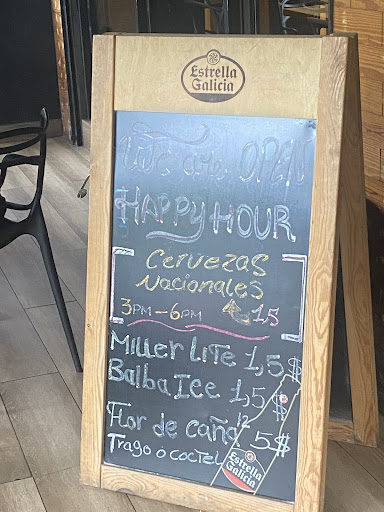 Estrella
Galicia
We are OPEN
HAPPY HOUR
Cervezas
Nacionales
3PM-6PM 1.5
MILLER LITE 1,5$
Balba ICE 1,5$
Flor de caña 12 5$
Trago o coctel
Estrella
Galicia